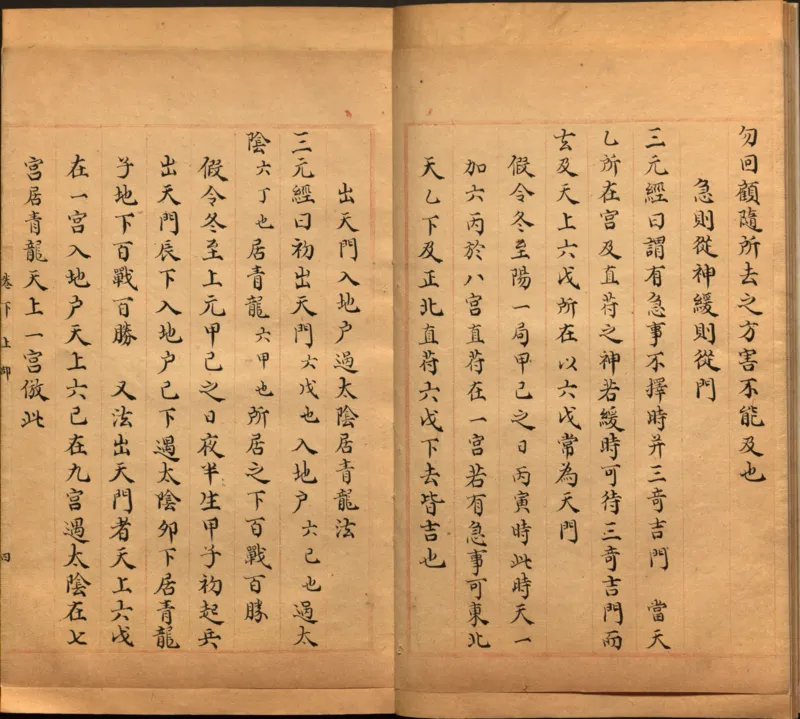 勿回顧隨所去之方害不能及也
急則從神緩則從門
三元經曰謂有急事不擇時并三竒吉門 當天
乙所在宮及直苻之神若緩時可待三竒吉門而
去及天上六戊所在以六戊常為天門
假令冬至陽一局甲己之日丙寅時此時天一
加六丙於八宮直苻在一宮若有急事可東北
天乙下及正北直苻六戊下去皆吉也
出天門入地户過太陰居青龍法
三元經曰初出天門六戊也入地户六己也過太
陰六丁也居青龍六甲也所居之下百戰百勝
假令冬至上元甲己之日夜半生甲子初起兵
出天門辰下入地户己下過太陰夘下居青龍
子地下百戰百勝 又法出天門者天上六戊
在一宮入地户天上六己在九宮過太陰在七
宮居青龍天上一宮倣此
卷下上 四